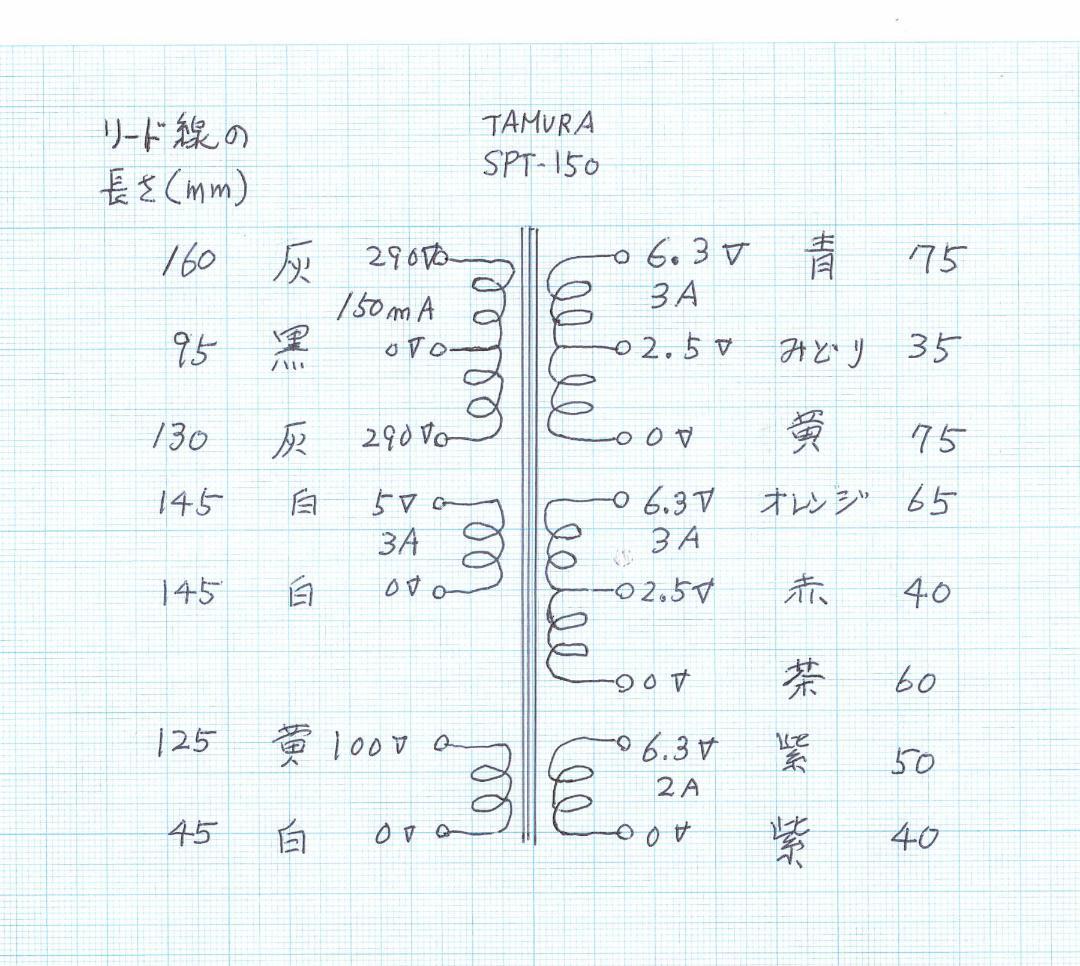 リード線の
長さ(mm)
TAMURA
SPT-150
160 灰 290V 6.3V 青 75
150mA 3A
95 黒 0V 2.5V みどり 35
130 灰 290V 0V 黄 75
145 白 5V 6.3V オレンジ 65
3A 3A
145 白 0V 2.5V 赤 40
0V 茶 60
125 黄 100V 6.3V 紫 50
2A
45 白 0V 0V 紫 40